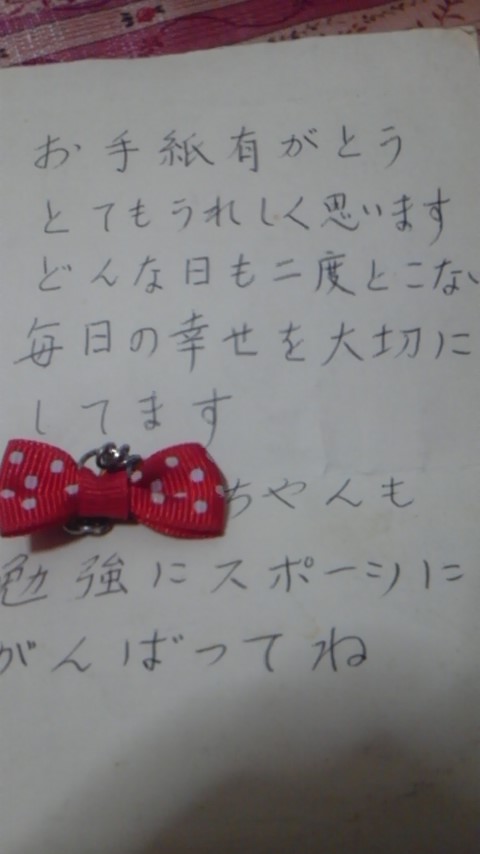 お手紙有がとう
とてもうれしく思います
どんな日も二度とこない
毎日の幸せを大切に
してます
ちゃんも
勉強にスポーツに
がんばってね